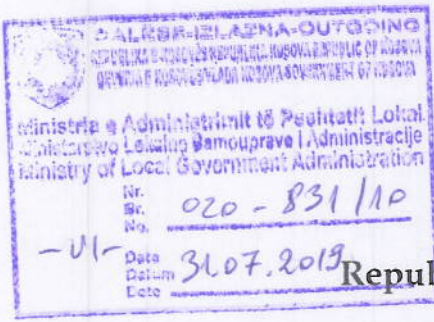 DALËSE-IZLAZNA-OUTGOING
REPUBLIKA E KOSOVËS REPUBLIKA KOSOVA REPUBLIC OF KOSOVA
QEVERIA E KOSOVËS VLADA KOSOVA GOVERNMENT OF KOSOVA
Ministria e Administrimit të Pushtetit Lokal
Ministarstvo Lokalne Samouprave i Administracije
Ministry of Local Government Administration
Nr.
Br. 020 - 831/10
No.
-VI-
Data
Datum 31.07.2019
Date
Repu